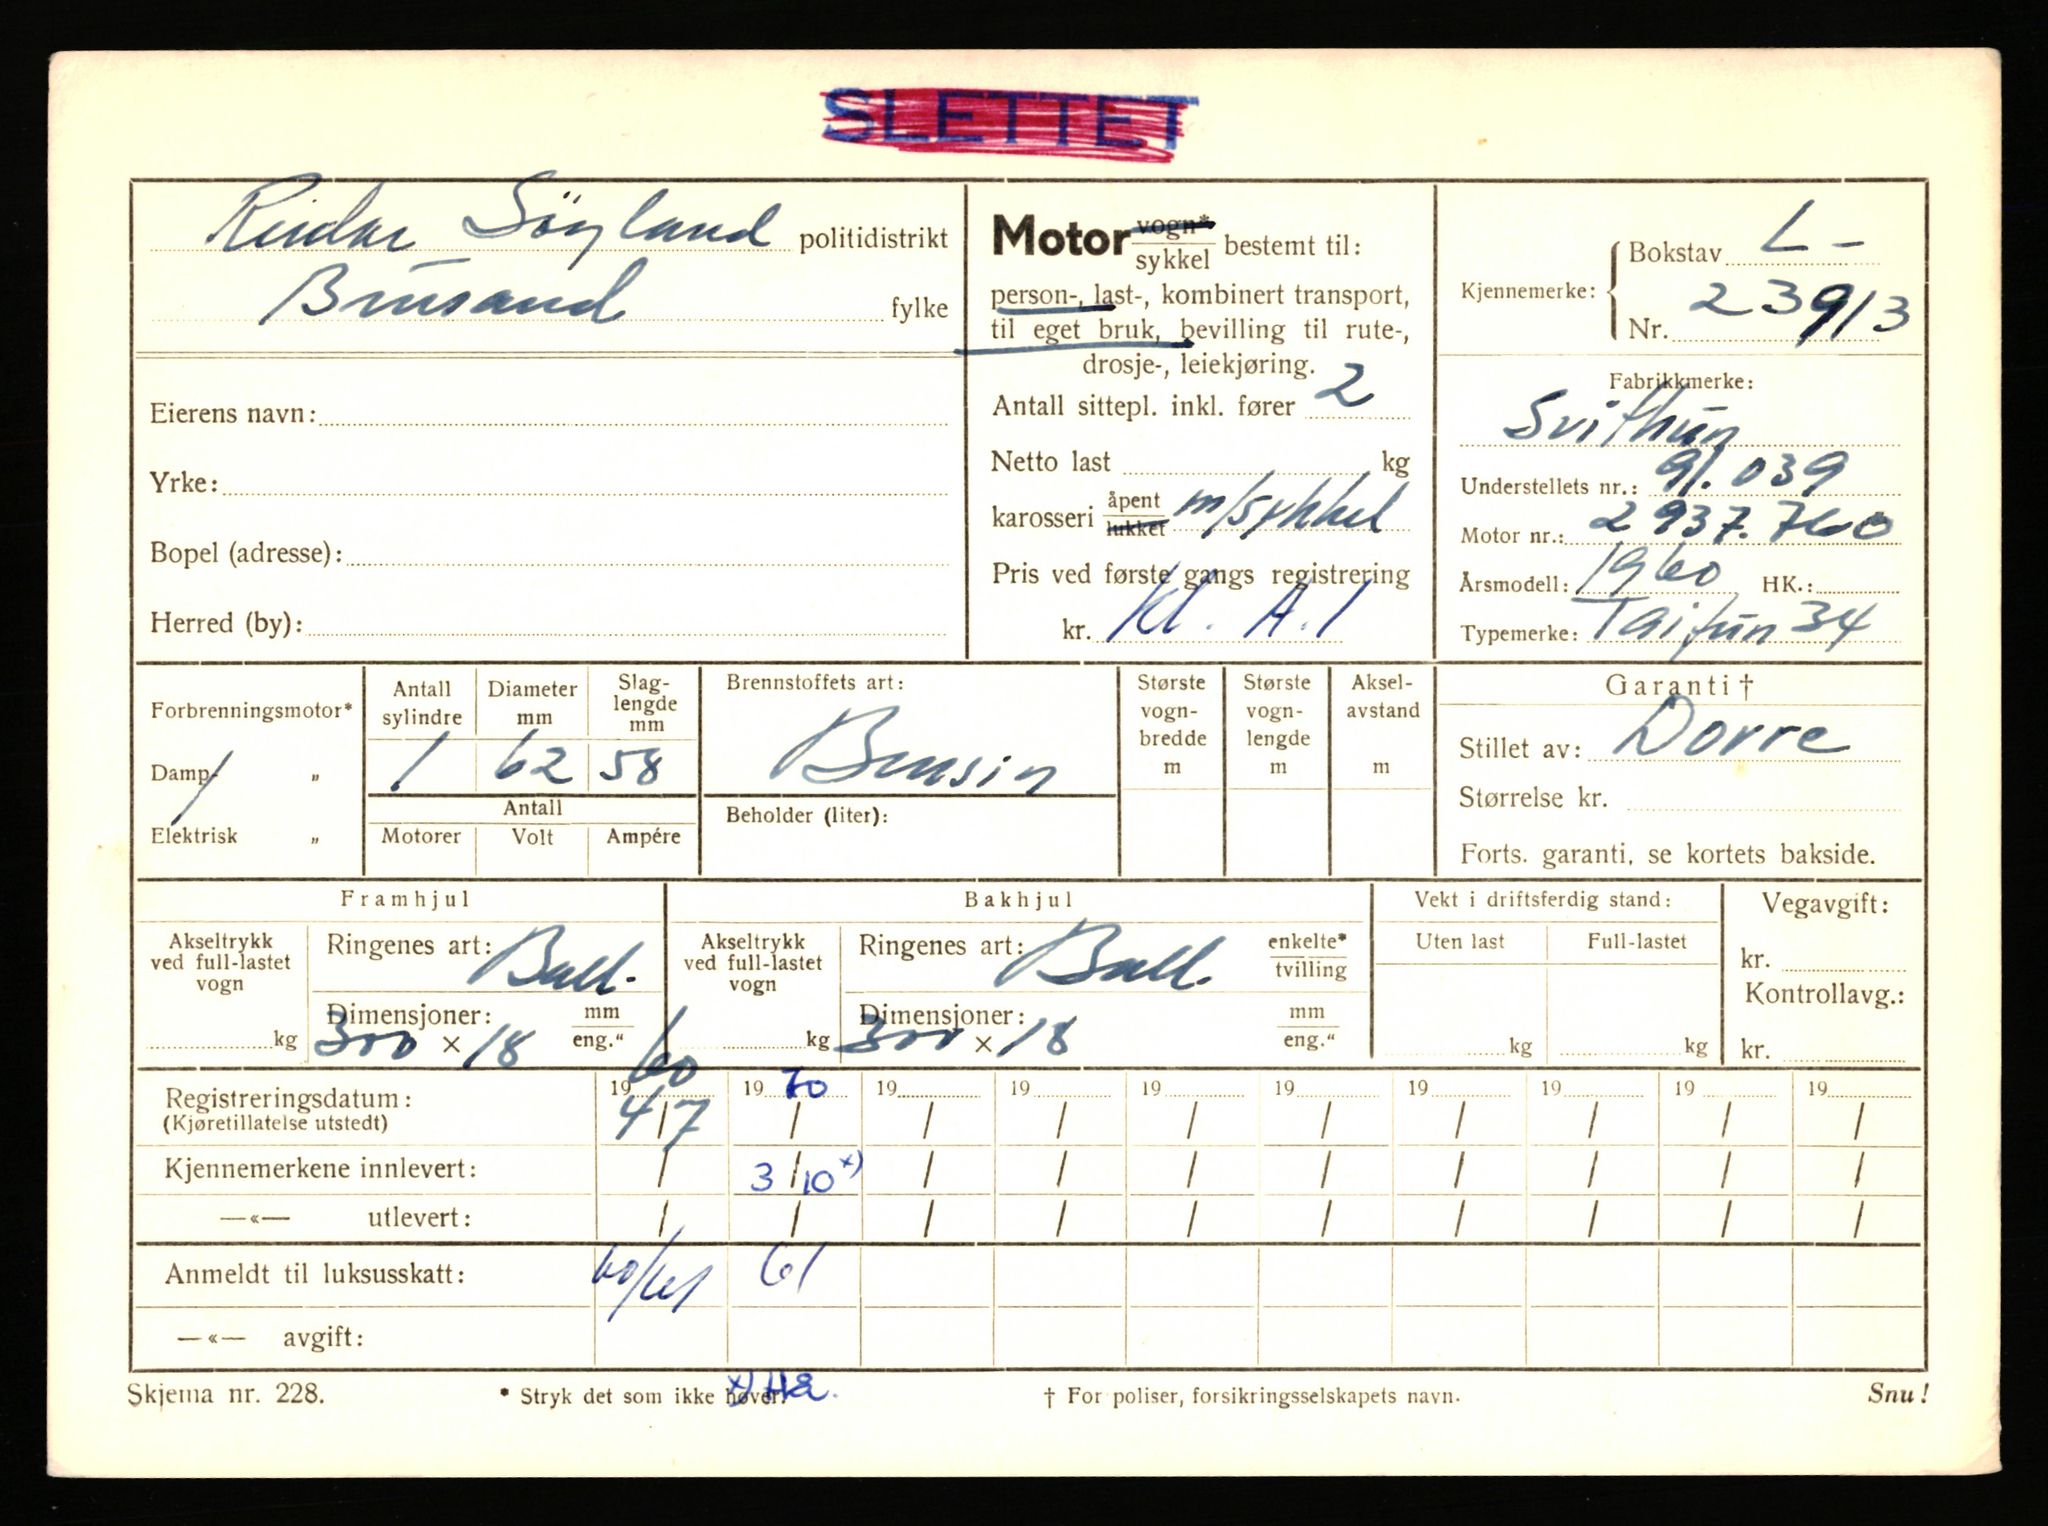 SLETTET
Reidar Söyland politidistrikt
Brusand fylke
Eierens navn:
Yrke:
Bopel (adresse):
Herred (by):
Motor vogn* / sykkel bestemt til:
person-, last-, kombinert transport,
til eget bruk, bevilling til rute-,
drosje-, leiekjøring.
Antall sittepl. inkl. fører 2
Netto last kg
karosseri åpent / lukket m/sykkel
Pris ved første gangs registrering
kr. Kl. A.1
Kjennemerke: Bokstav L-
Nr. 23913
Fabrikkmerke:
Svithun
Understellets nr.: 91.039
Motor nr.: 2937.760
Årsmodell: 1960 HK.:
Typemerke: Taifun 34
Forbrenningsmotor*
Damp- "
Elektrisk "
Antall sylindre
1
Diameter mm
62
Slag-
lengde
mm
58
Antall
Motorer Volt Ampére
Brennstoffets art:
Bensin
Beholder (liter):
Største
vogn-
bredde
m
Største
vogn-
lengde
m
Aksel-
avstand
m
Garanti †
Stillet av: Dovre
Størrelse kr.
Forts. garanti, se kortets bakside.
Framhjul
Akseltrykk
ved full-lastet
vogn
kg
Ringenes art: Ball.
Dimensjoner: mm
300 × 18 eng."
Bakhjul
Akseltrykk
ved full-lastet
vogn
kg
Ringenes art: Ball. enkelte* / tvilling
Dimensjoner: mm
300 × 18 eng."
Vekt i driftsferdig stand:
Uten last Full-lastet
kg kg
Vegavgift:
kr.
Kontrollavg.:
kr.
Registreringsdatum: 1960 1970 19 19 19 19 19 19 19 19
(Kjøretillatelse utstedt) 4/7 / / / / / / / / /
Kjennemerkene innlevert: / 3/10 x) / / / / / / / /
—«— utlevert: / / / / / / / / / /
Anmeldt til luksusskatt: 60/61 61
—«— avgift:
Skjema nr. 228. * Stryk det som ikke høver. x) HÅ. † For poliser, forsikringsselskapets navn. Snu!